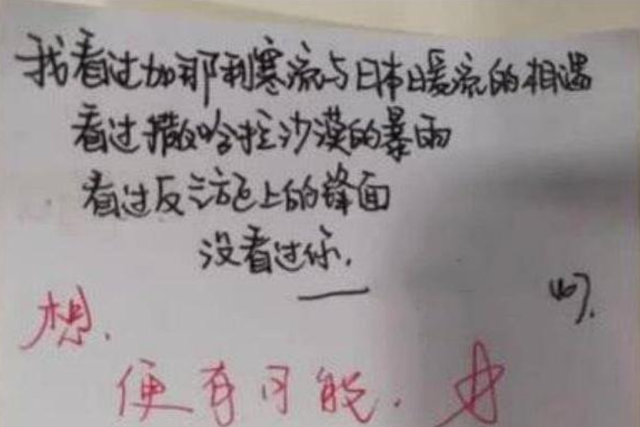 我看过加那利寒流与日本暖流的相遇
看过撒哈拉沙漠的暴雨
看过反上的锋面
没看过你.
想.
便有可能.